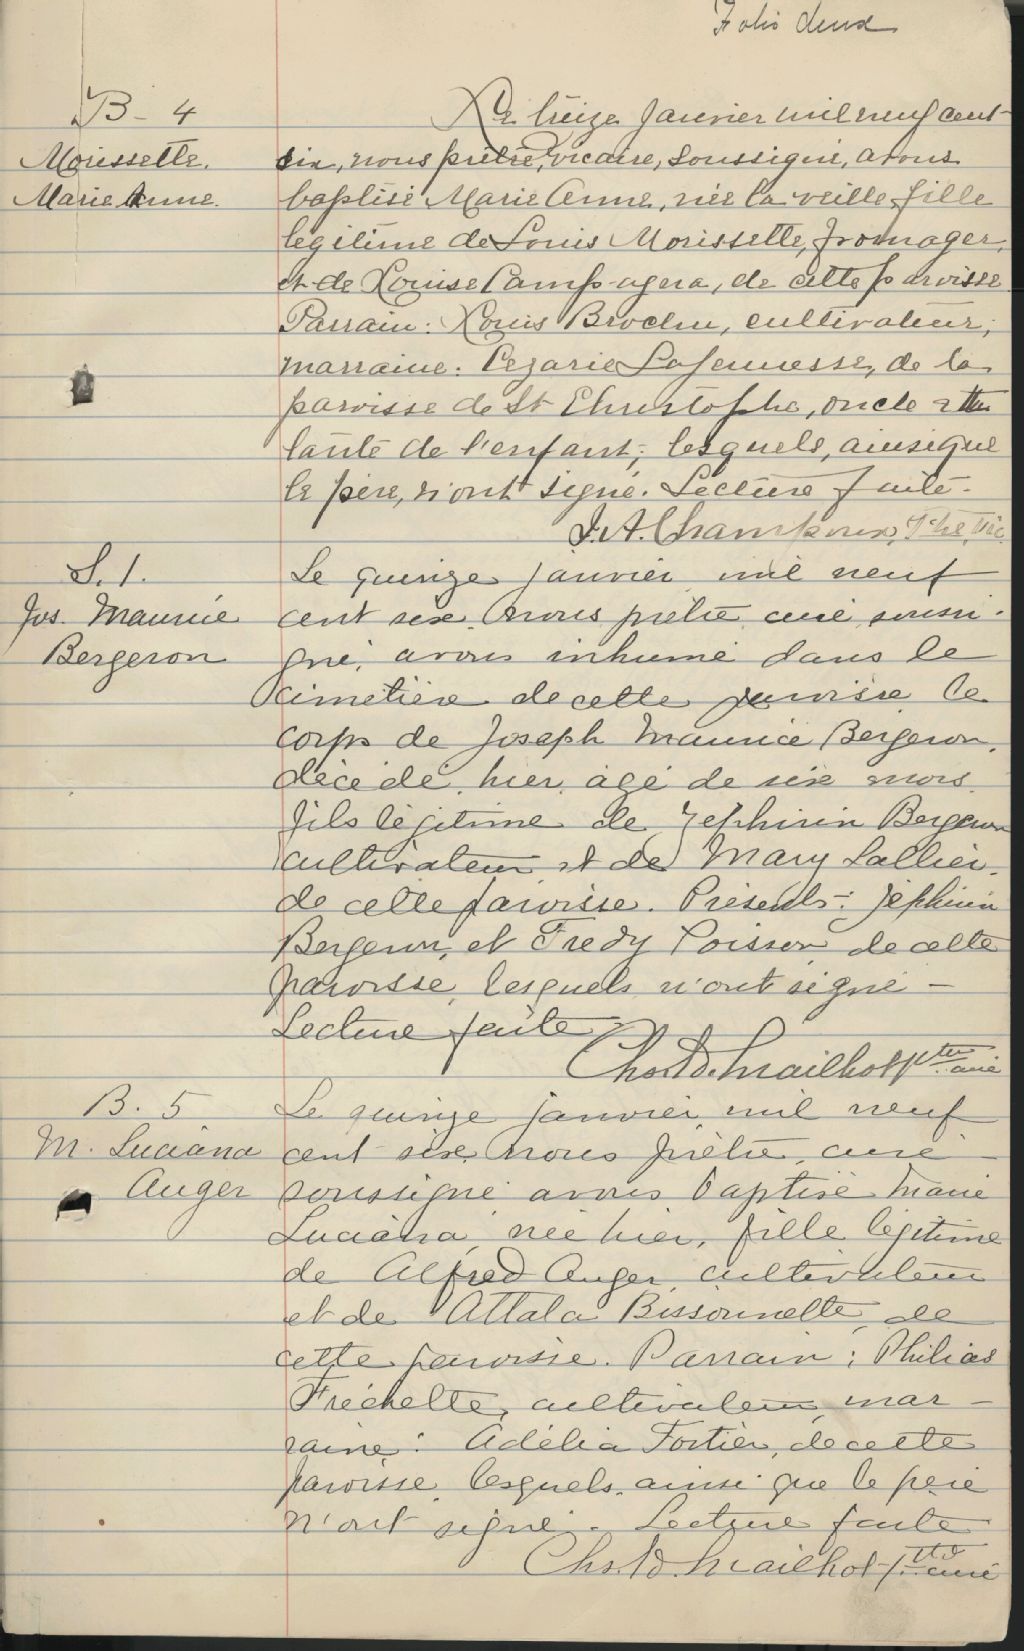 Folio deux
B - 4
Morissette.
Marie Anne.
Le treize janvier mil neuf cent
six, nous prêtre, vicaire, soussigné, avons
baptisé Marie Anne, née la veille, fille
légitime de Louis Morissette, fromager,
et de Louise Campagna, de cette paroisse.
Parrain: Louis Brochu, cultivateur;
marraine: Cézarie Lajeunesse, de la
paroisse de St Christophe, oncle et
tante de l'enfant; lesquels, ainsi que
le père, n'ont signé. Lecture faite.
J. A. Champoux, Ptre, Vic.
S. 1.
Jos. Maurice
Bergeron
Le quinze janvier mil neuf
cent six, nous prêtre curé soussi-
gné, avons inhumé dans le
cimetière de cette paroisse le
corps de Joseph Maurice Bergeron,
décédé hier, âgé de six mois,
fils légitime de Zéphirin Bergeron
cultivateur et de Mary Lallier,
de cette paroisse. Présents: Zéphirin
Bergeron, et Fredy Poisson, de cette
paroisse, lesquels n'ont signé -
Lecture faite
Chs. Ed. Mailhot ptre curé
B. 5
M. Luciana
Auger
Le quinze janvier mil neuf
cent six, nous prêtre, curé -
soussigné avons baptisé Marie
Luciana, née hier, fille légitime
de Alfred Auger, cultivateur
et de Attala Bissonnette, de
cette paroisse. Parrain: Philias
Fréchette, cultivateur, mar-
raine: Adélia Fortier, de cette
paroisse, lesquels, ainsi que le père
n'ont signé. Lecture faite
Chs. Ed. Mailhot ptre curé